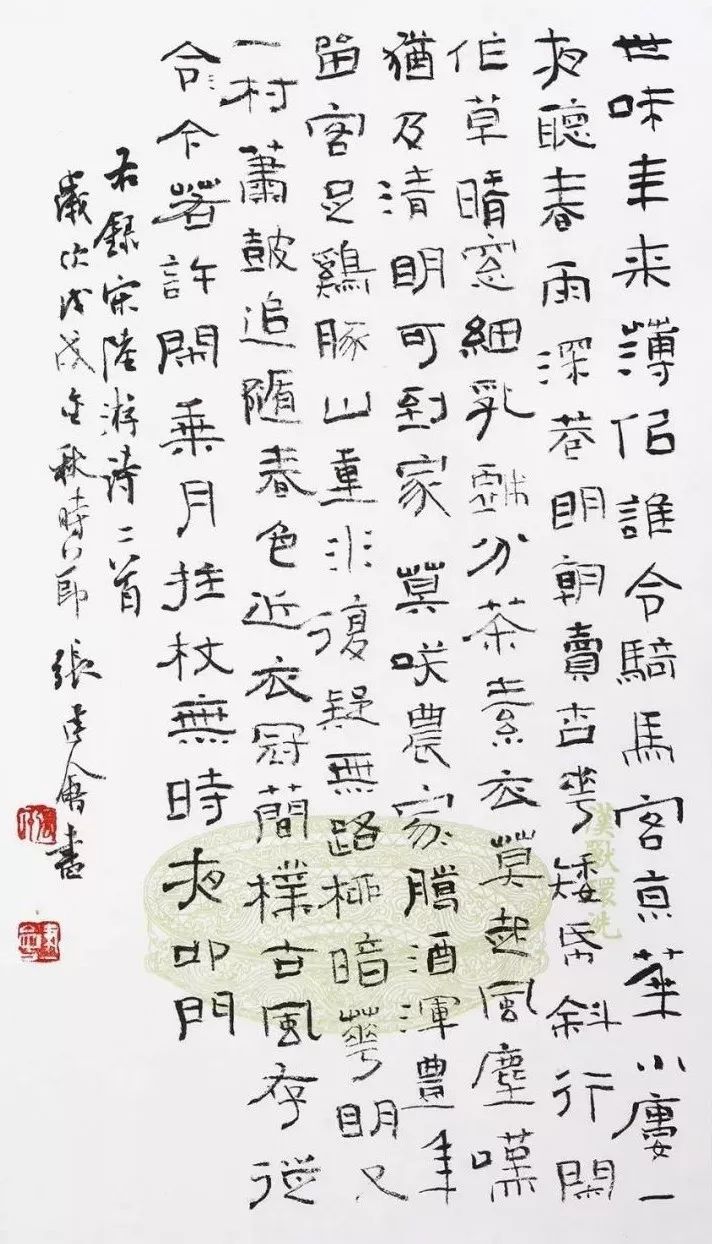 世味年来薄佀誰令騎馬客京華小廔一
夜聽春雨深巷明朝賣杏華矮帋斜行閑
作草晴窓細乳戲分茶素衣莫起風塵嘆
猶及清明可到家 莫咲農家臘酒渾豊年
畱客足鷄豚山重水復疑無路柳暗華明又
一村蕭鼓追隨春色近衣冠簡樸古風存從
今今若許閑乘月拄杖無時夜叩門
右録宋陸游詩二首
歲次戊戌金秋時節張建會書
漢獸環洗